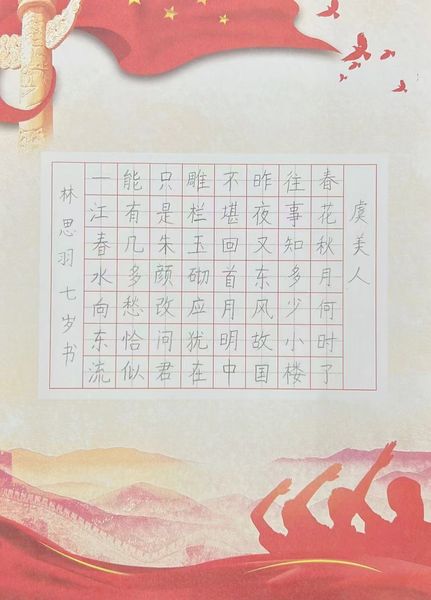 虞美人
春花秋月何时了
往事知多少小楼
昨夜又东风故国
不堪回首月明中
雕栏玉砌应犹在
只是朱颜改问君
能有几多愁恰似
一江春水向东流
林思羽七岁书